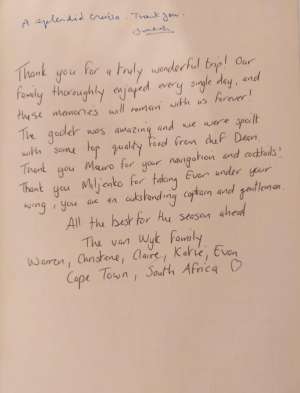 A splendid cruise. Thank you.
Thank you for a truly wonderful trip! Our
family thoroughly enjoyed every single day, and
these memories will remain with us forever!
The godet was amazing and we were spoilt
with some top quality food from chef Dean.
Thank you Mauro for your navigation and cocktails!
Thank you Miljenko for taking Evan under your
wing, you are an outstanding captain and gentleman.
All the best for the season ahead
The van Wyk Family
Warren, Christene, Claire, Katie, Evan
Cape Town, South Africa ♡